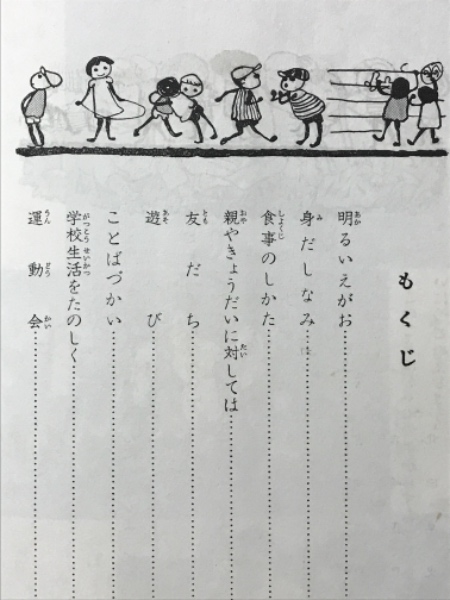 もくじ
明るいえがお
身だしなみ
食事のしかた
親やきょうだいに対しては
友だち
遊び
ことばづかい
学校生活をたのしく
運動会